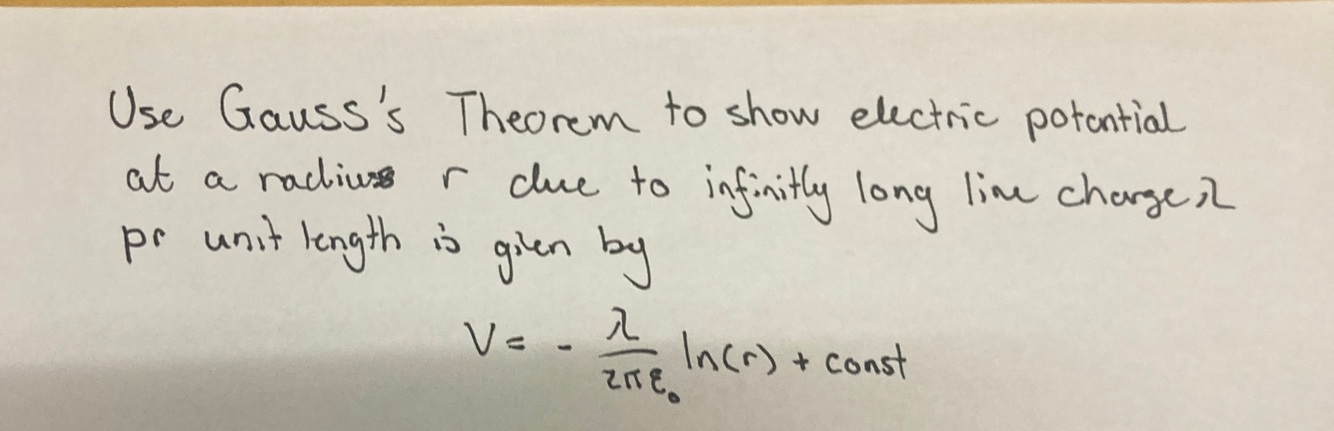 Use Gauss's Theorem to show electric potential
at a radius r due to infinitly long line charge λ
pr unit length is given by
V = - λ/2πε₀ ln(r) + const